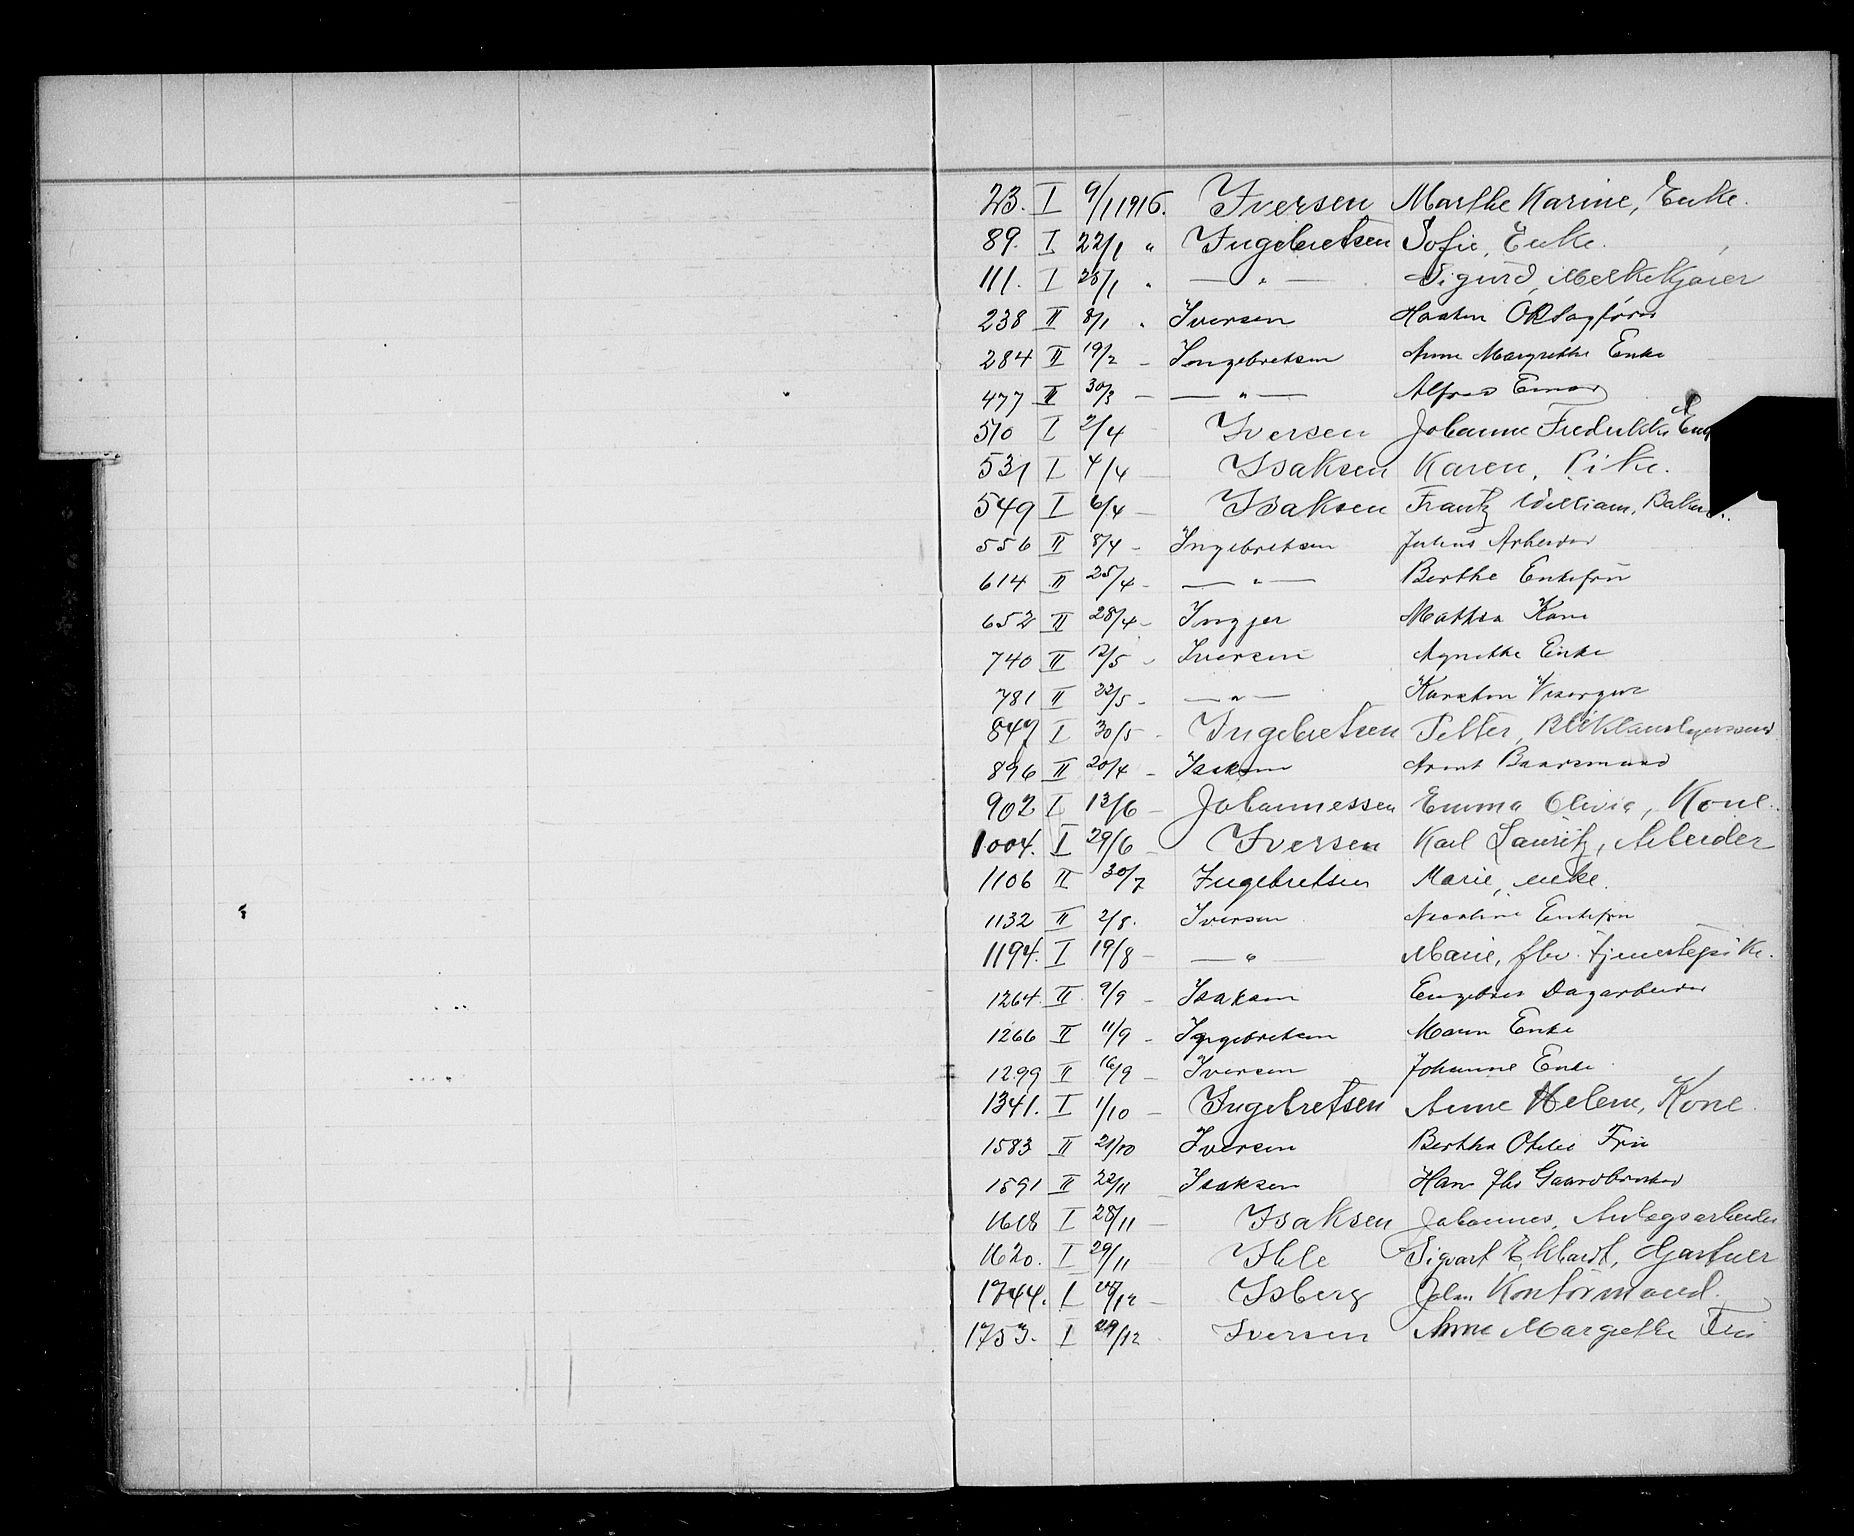 23. I 9/1 1916. Iversen Marthe Karine, Enke.
89. I 22/1 " Ingebretsen Sofie, Enke.
111. I 25/1 " — " — Sigurd, Melkekjører
238 II 8/1 " Iversen Haakon
284 II 19/2 – Ingebretsen Anne Margrethe Enke
477 II 30/3 – — " — Alfred Einar
510 I 2/4 Iversen Johanne Fredrikke
531 I 4/4 – Isaksen Karen, Pike.
549 I 6/4 – Isaksen Frantz William,
556 II 8/4 – Ingebretsen Julius Arbeider
614 II 25/4 – — " — Berthe Enkefru
652 II 28/4 – Ingjer Mathea Kone
740 II 12/5 – Iversen Agnethe Enke
781 II 22/5 – — " — Karsten Visergut
847 I 30/5 – Ingebretsen Petter,
896 II 20/4 – Isaksen Arent Baarsmand
902 I 13/6 – Johannessen Emma Olivia, Kone.
1004. I 29/6 – Iversen Karl Lauritz, Arbeider
1106 II 30/7 Ingebretsen Marie, enke.
1132 II 2/8. Iversen Enkefru
1194. I 19/8 – — " — Marie, fhv. tjenestepike.
1264. II 9/9 – Isaksen Engebret Dagarbeider
1266 II 11/9 – Ingebretsen Maren Enke
1299 II 16/9 – Iversen Johanne Enke
1341. I 1/10 – Ingebretsen Anne Helene, Kone.
1583 II 21/10 Iversen Bertha Otilie Fru
1591 II 22/11 Isaksen Hans Jbs Gaardbruker
1618 I 28/11 – Isaksen Johannes, Anlegsarbeider
1620. I 29/11 – Ihle Sigvart Ekhardt, Gartner
1744. I 27/12 – Isberg Johan Kontormand.
1753. I 29/12 Iversen Anne Margrethe Fru